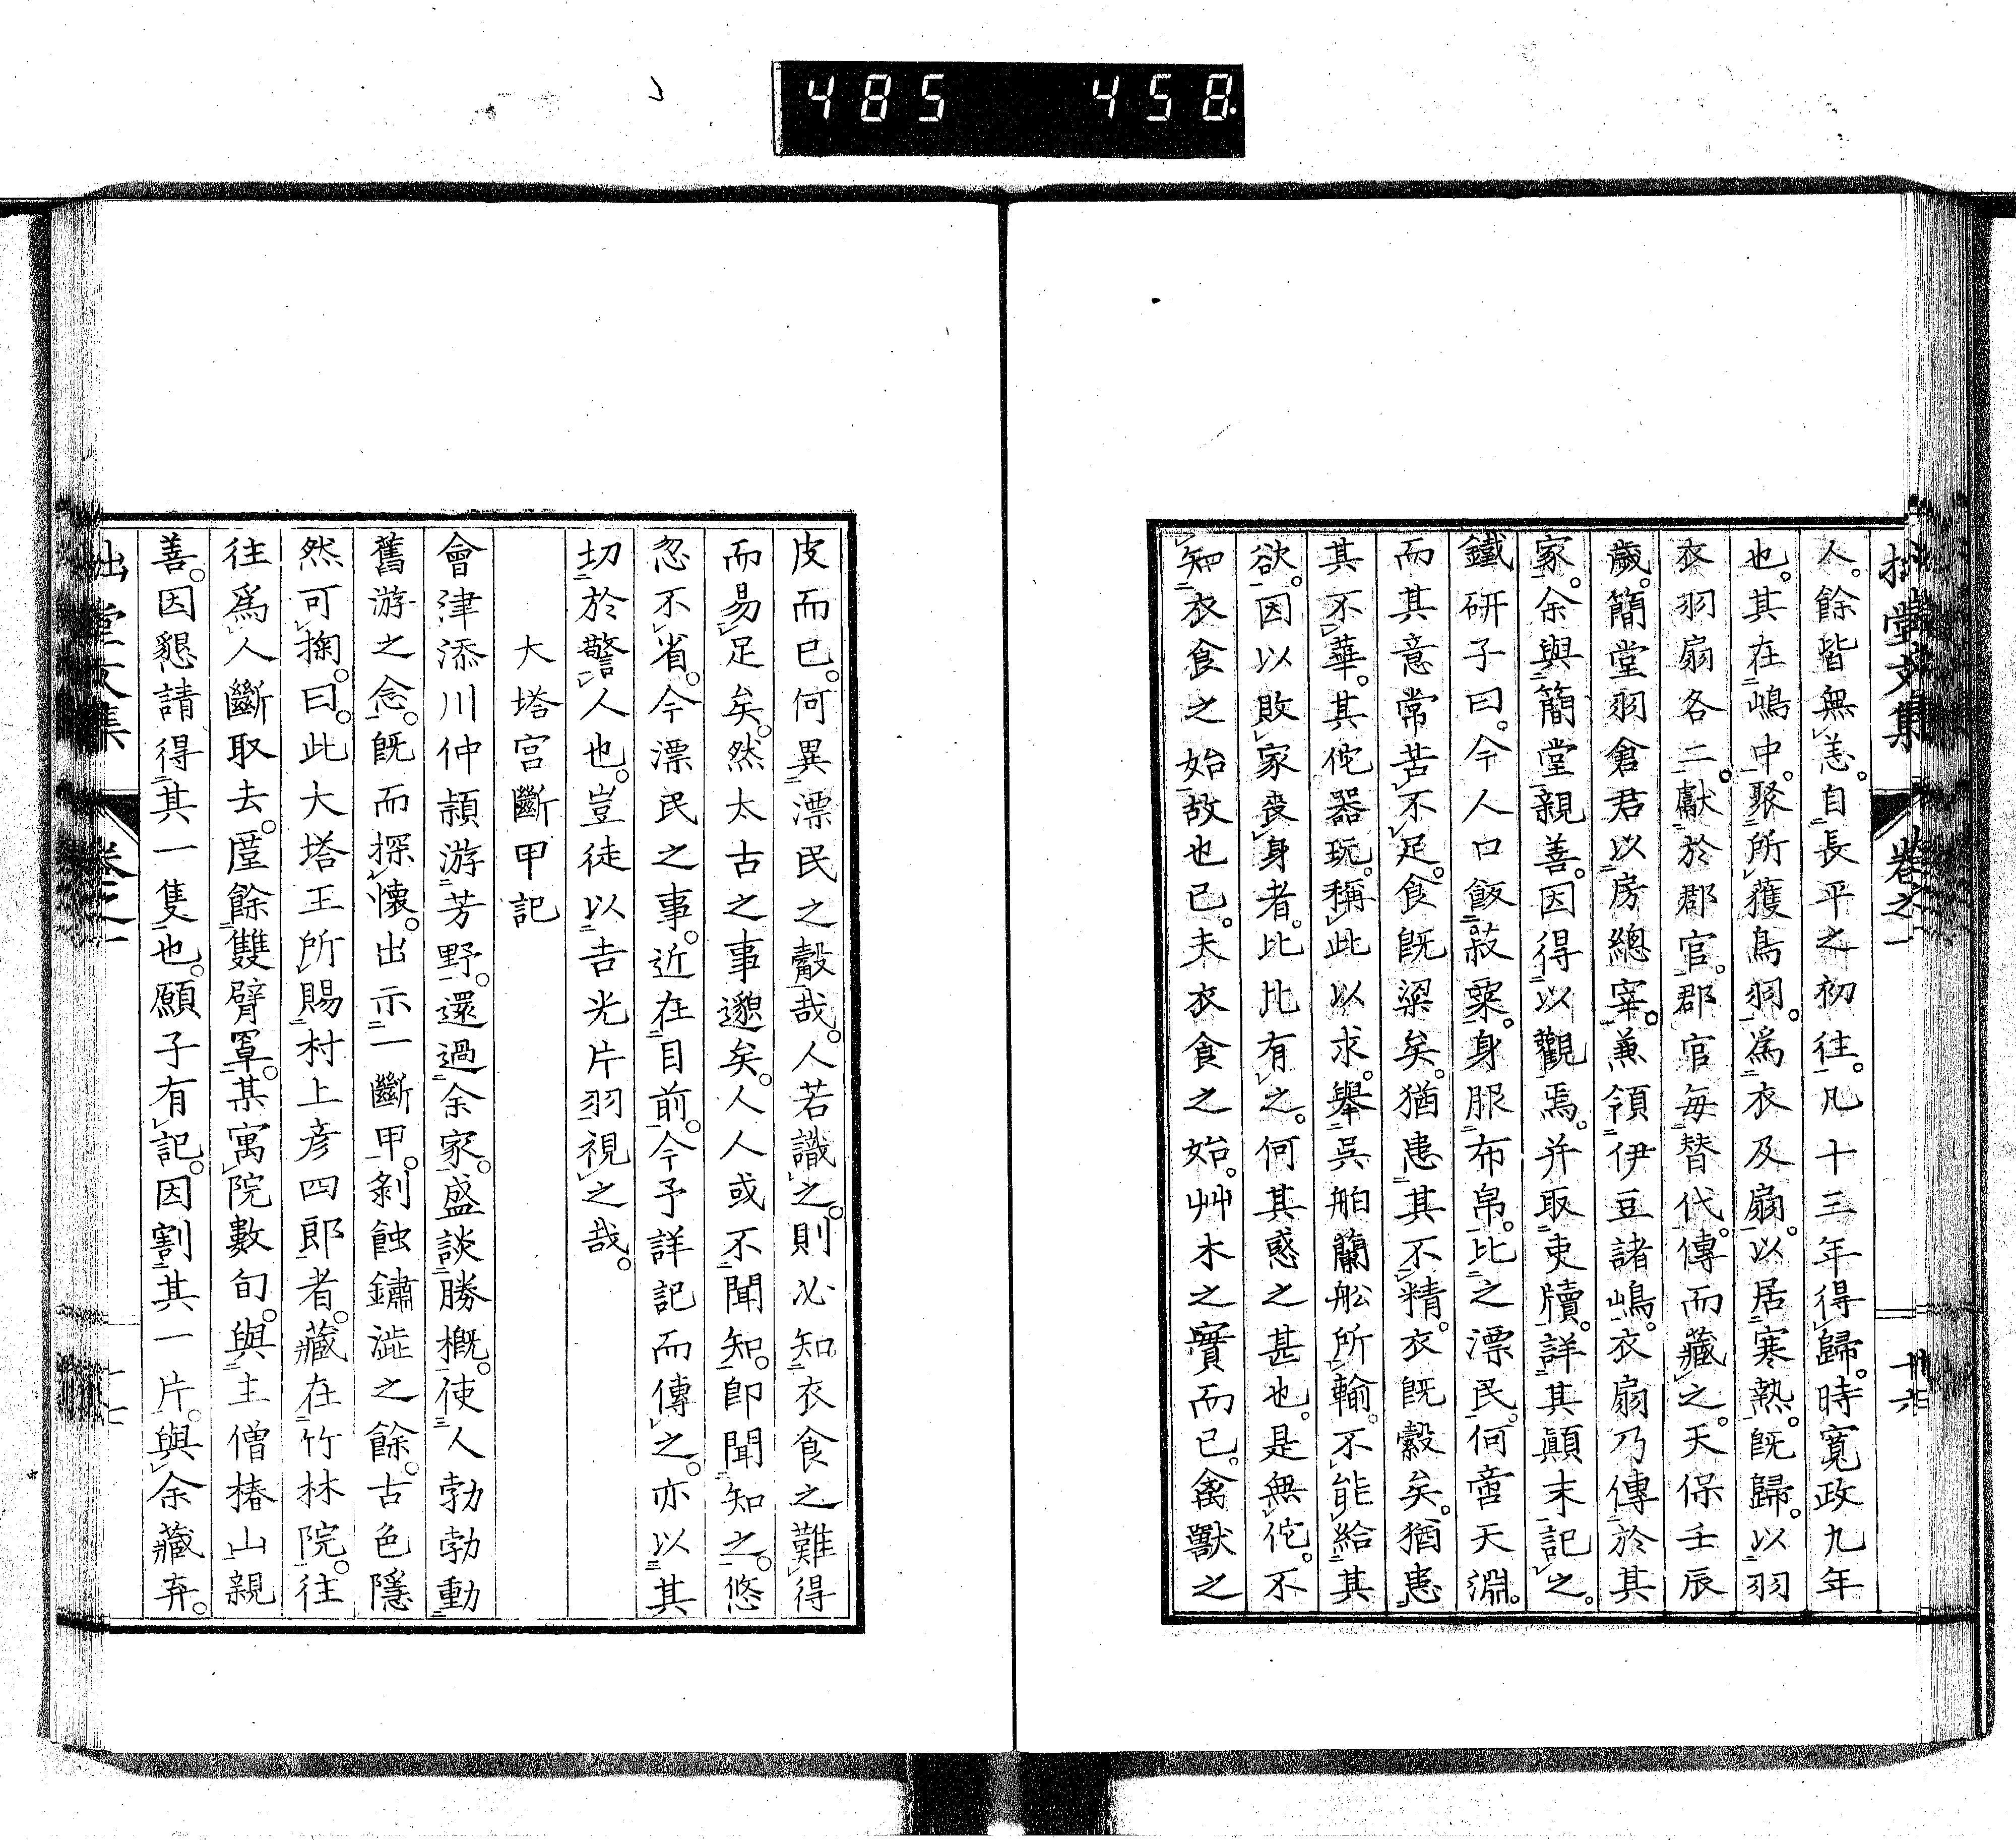 485 458
拙堂文集 卷之一 廿六
人。餘皆無恙。自長平之初往。凡十三年得歸。時寛政九年
也。其在嶋中。聚所獲鳥羽。爲衣及扇。以居寒熱。既歸。以羽
衣羽扇各二。獻於郡官。郡官毎替代。傳而藏之。天保壬辰
歳。簡堂羽倉君以房總宰。兼領伊豆諸嶋。衣扇乃傳於其
家。余與簡堂親善。因得以觀焉。并取吏牘。詳其顛末記之。
鐵研子曰。今人口飯菽粟。身服布帛。比之漂民。何啻天淵。
而其意常苦不足。食既粱矣。猶患其不精。衣既縠矣。猶患
其不華。其佗器玩。稱此以求。舉呉舶蘭舩所輸。不能給其
欲。因以敗家喪身者。比比有之。何其惑之甚也。是無佗。不
知衣食之始故也已。夫衣食之始。艸木之實而已。禽獸之
皮而已。何異漂民之觳哉。人若識之。則必知衣食之難得
而易足矣。然太古之事邈矣。人人或不聞知。即聞知之。悠
忽不省。今漂民之事。近在目前。今予詳記而傳之。亦以其
切於警人也。豈徒以吉光片羽視之哉。
大塔宮斷甲記
會津添川仲頴游芳野。還過余家。盛談勝概。使人勃勃動
舊游之念。既而探懷。出示一斷甲。剥蝕鏽澁之餘。古色隱
然可掬。曰。此大塔王所賜村上彦四郎者。藏在竹林院。往
往爲人斷取去。厪餘雙臂罩。某寓院數旬。與主僧椿山親
善。因懇請得其一隻也。願子有記。因割其一片。與余藏弆。
拙堂文集 卷之一